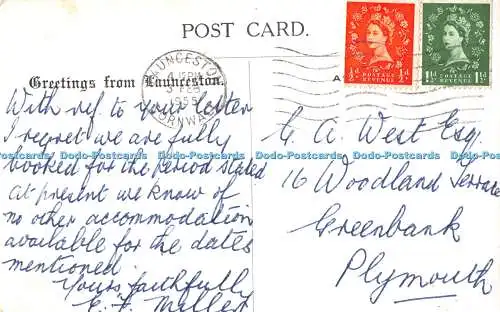 POST CARD.
Greetings from Launceston.
LAUNCESTON
CORNWALL
1955
A
POSTAGE
REVENUE
½D
½D
POSTAGE
REVENUE
1½D
1½D
With ref to your letter
I regret we are fully
booked for the period stated
at present we know of
no other accommodation
available for the dates
mentioned.
Yours faithfully
E. F. Miller
G. A. West Esq.
16 Woodland Terrace
Greenbank
Plymouth
Dodo-Postcards Dodo-Postcards Dodo-Postcards Dodo-Postcards Dodo-Postcards